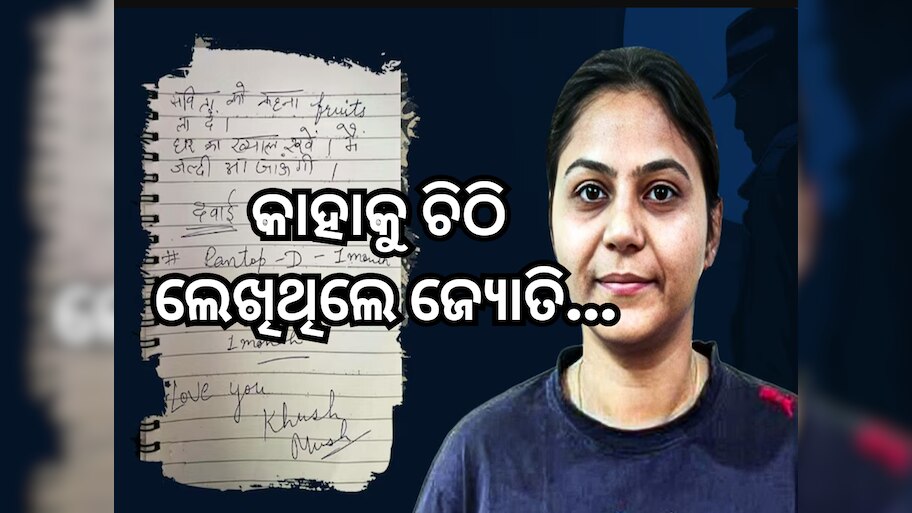 सविता को कहना fruits
ला दे।
घर का ख्याल रखें। मैं
जल्दी आ जाऊंगी।
दवाई
# Pantop-D - 1 month
1 month
Love you
Khush
Mush
କାହାକୁ ଚିଠି
ଲେଖିଥିଲେ ଜ୍ୟୋତି...